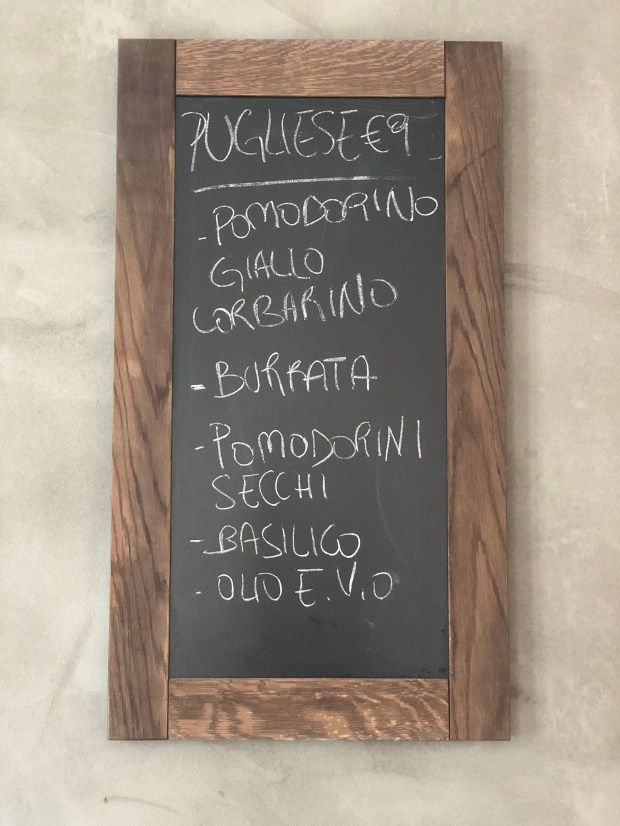 PUGLIESE €9
- POMODORINO
GIALLO
CORBARINO
- BURRATA
- POMODORINI
SECCHI
- BASILICO
- OLIO E.V.O